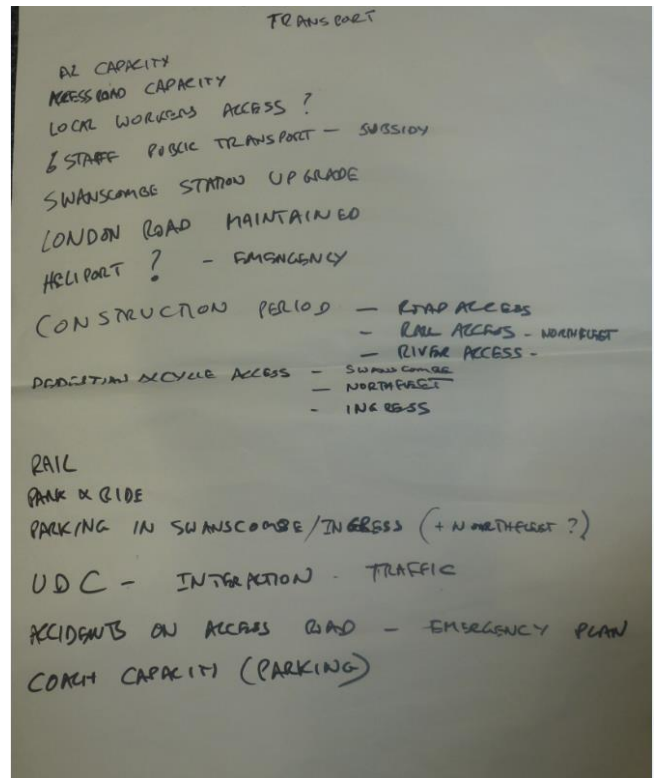 TRANSPORT
A2 CAPACITY
ACCESS ROAD CAPACITY
LOCAL WORKERS ACCESS ?
& STAFF PUBLIC TRANSPORT - SUBSIDY
SWANSCOMBE STATION UPGRADE
LONDON ROAD MAINTAINED
HELIPORT ? - EMERGENCY
CONSTRUCTION PERIOD - ROAD ACCESS
- RAIL ACCESS - NORTHFLEET
- RIVER ACCESS -
PEDESTRIAN & CYCLE ACCESS - SWANSCOMBE
- NORTHFLEET
- INGRESS
RAIL
PARK & RIDE
PARKING IN SWANSCOMBE/INGRESS (+ NORTHFLEET ?)
UDC - INTERACTION - TRAFFIC
ACCIDENTS ON ACCESS ROAD - EMERGENCY PLAN
COACH CAPACITY (PARKING)